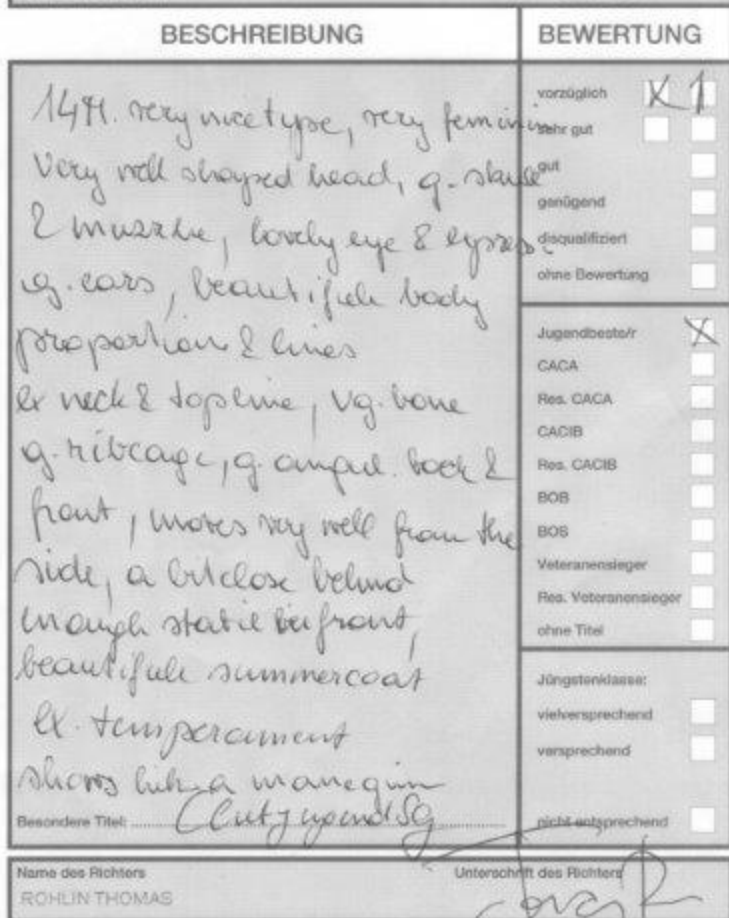 BESCHREIBUNG
14M. very nice type, very feminin
Very well shaped head, g. skull
& muzzle, lovely eye & express.
g. ears, beautifule body
proportion & lines
ex neck & topline, vg. bone
g. ribcage, g. angul. back &
front, moves very well from the
side, a bit close behind
enough stabil in front,
beautifule summercoat
ex. temperament
shows like a manequin
Besondere Titel:
BEWERTUNG
vorzüglich X 1
sehr gut
gut
genügend
disqualifiziert
ohne Bewertung
Jugendbeste/r X
CACA
Res. CACA
CACIB
Res. CACIB
BOB
BOS
Veteranensieger
Res. Veteranensieger
ohne Titel
Jüngstenklasse:
vielversprechend
versprechend
nicht entsprechend
Name des Richters
ROHLIN THOMAS
Unterschrift des Richters